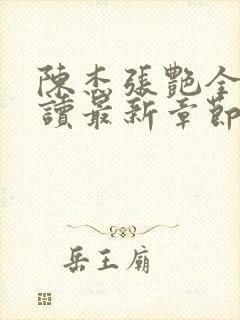 陳杰張艷全
讀最新章節
岳王廟